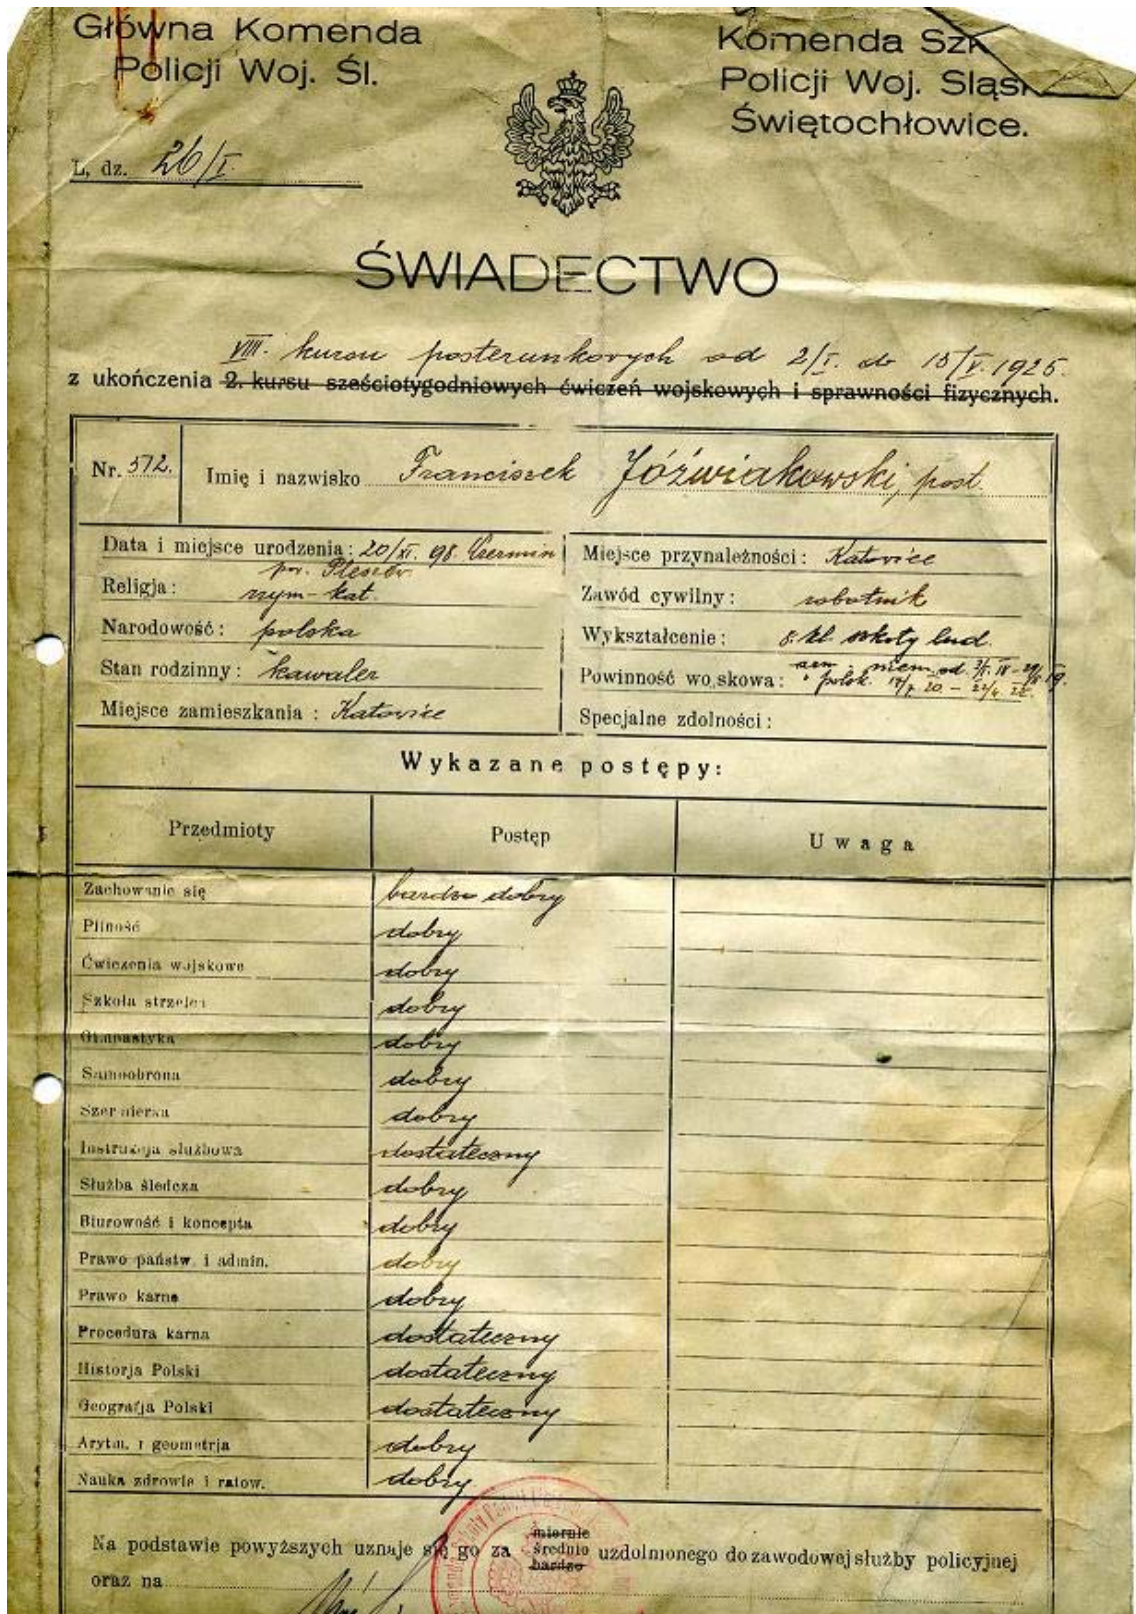 Główna Komenda
Policji Woj. Śl.
Komenda Szk
Policji Woj. Śląsk
Świętochłowice.
L. dz. 26/I.
ŚWIADECTWO
VIII. kursu posterunkowych od 2/I. do 15/V. 1925.
z ukończenia 2. kursu sześciotygodniowych ćwiczeń wojskowych i sprawności fizycznych.
Nr. 572. Imię i nazwisko Franciszek Jóźwiakowski, post.
Data i miejsce urodzenia: 20/XI. 98. Czermin
pow. Pleszew
Religja: rzym-kat.
Narodowość: polska
Stan rodzinny: kawaler
Miejsce zamieszkania: Katowice
Miejsce przynależności: Katowice
Zawód cywilny: robotnik
Wykształcenie: 8. kl. szkoły lud.
Powinność wojskowa: arm. niem. od
" polsk. 20. –
Specjalne zdolności:
Wykazane postępy:
Przedmioty Postęp Uwaga
Zachowanie się bardzo dobry
Pilność dobry
Ćwiczenia wojskowe dobry
Szkoła strzelec dobry
Gimnastyka dobry
Samoobrona dobry
Szermierka dobry
Instrukcja służbowa dostateczny
Służba śledcza dobry
Biurowość i koncepta dobry
Prawo państw. i admin. dobry
Prawo karne dobry
Procedura karna dostateczny
Historja Polski dostateczny
Geografja Polski dostateczny
Arytm. i geometrja dobry
Nauka zdrowia i ratow. dobry
miernie
Na podstawie powyższych uznaje się go za średnio uzdolnionego do zawodowej służby policyjnej
bardzo
oraz na